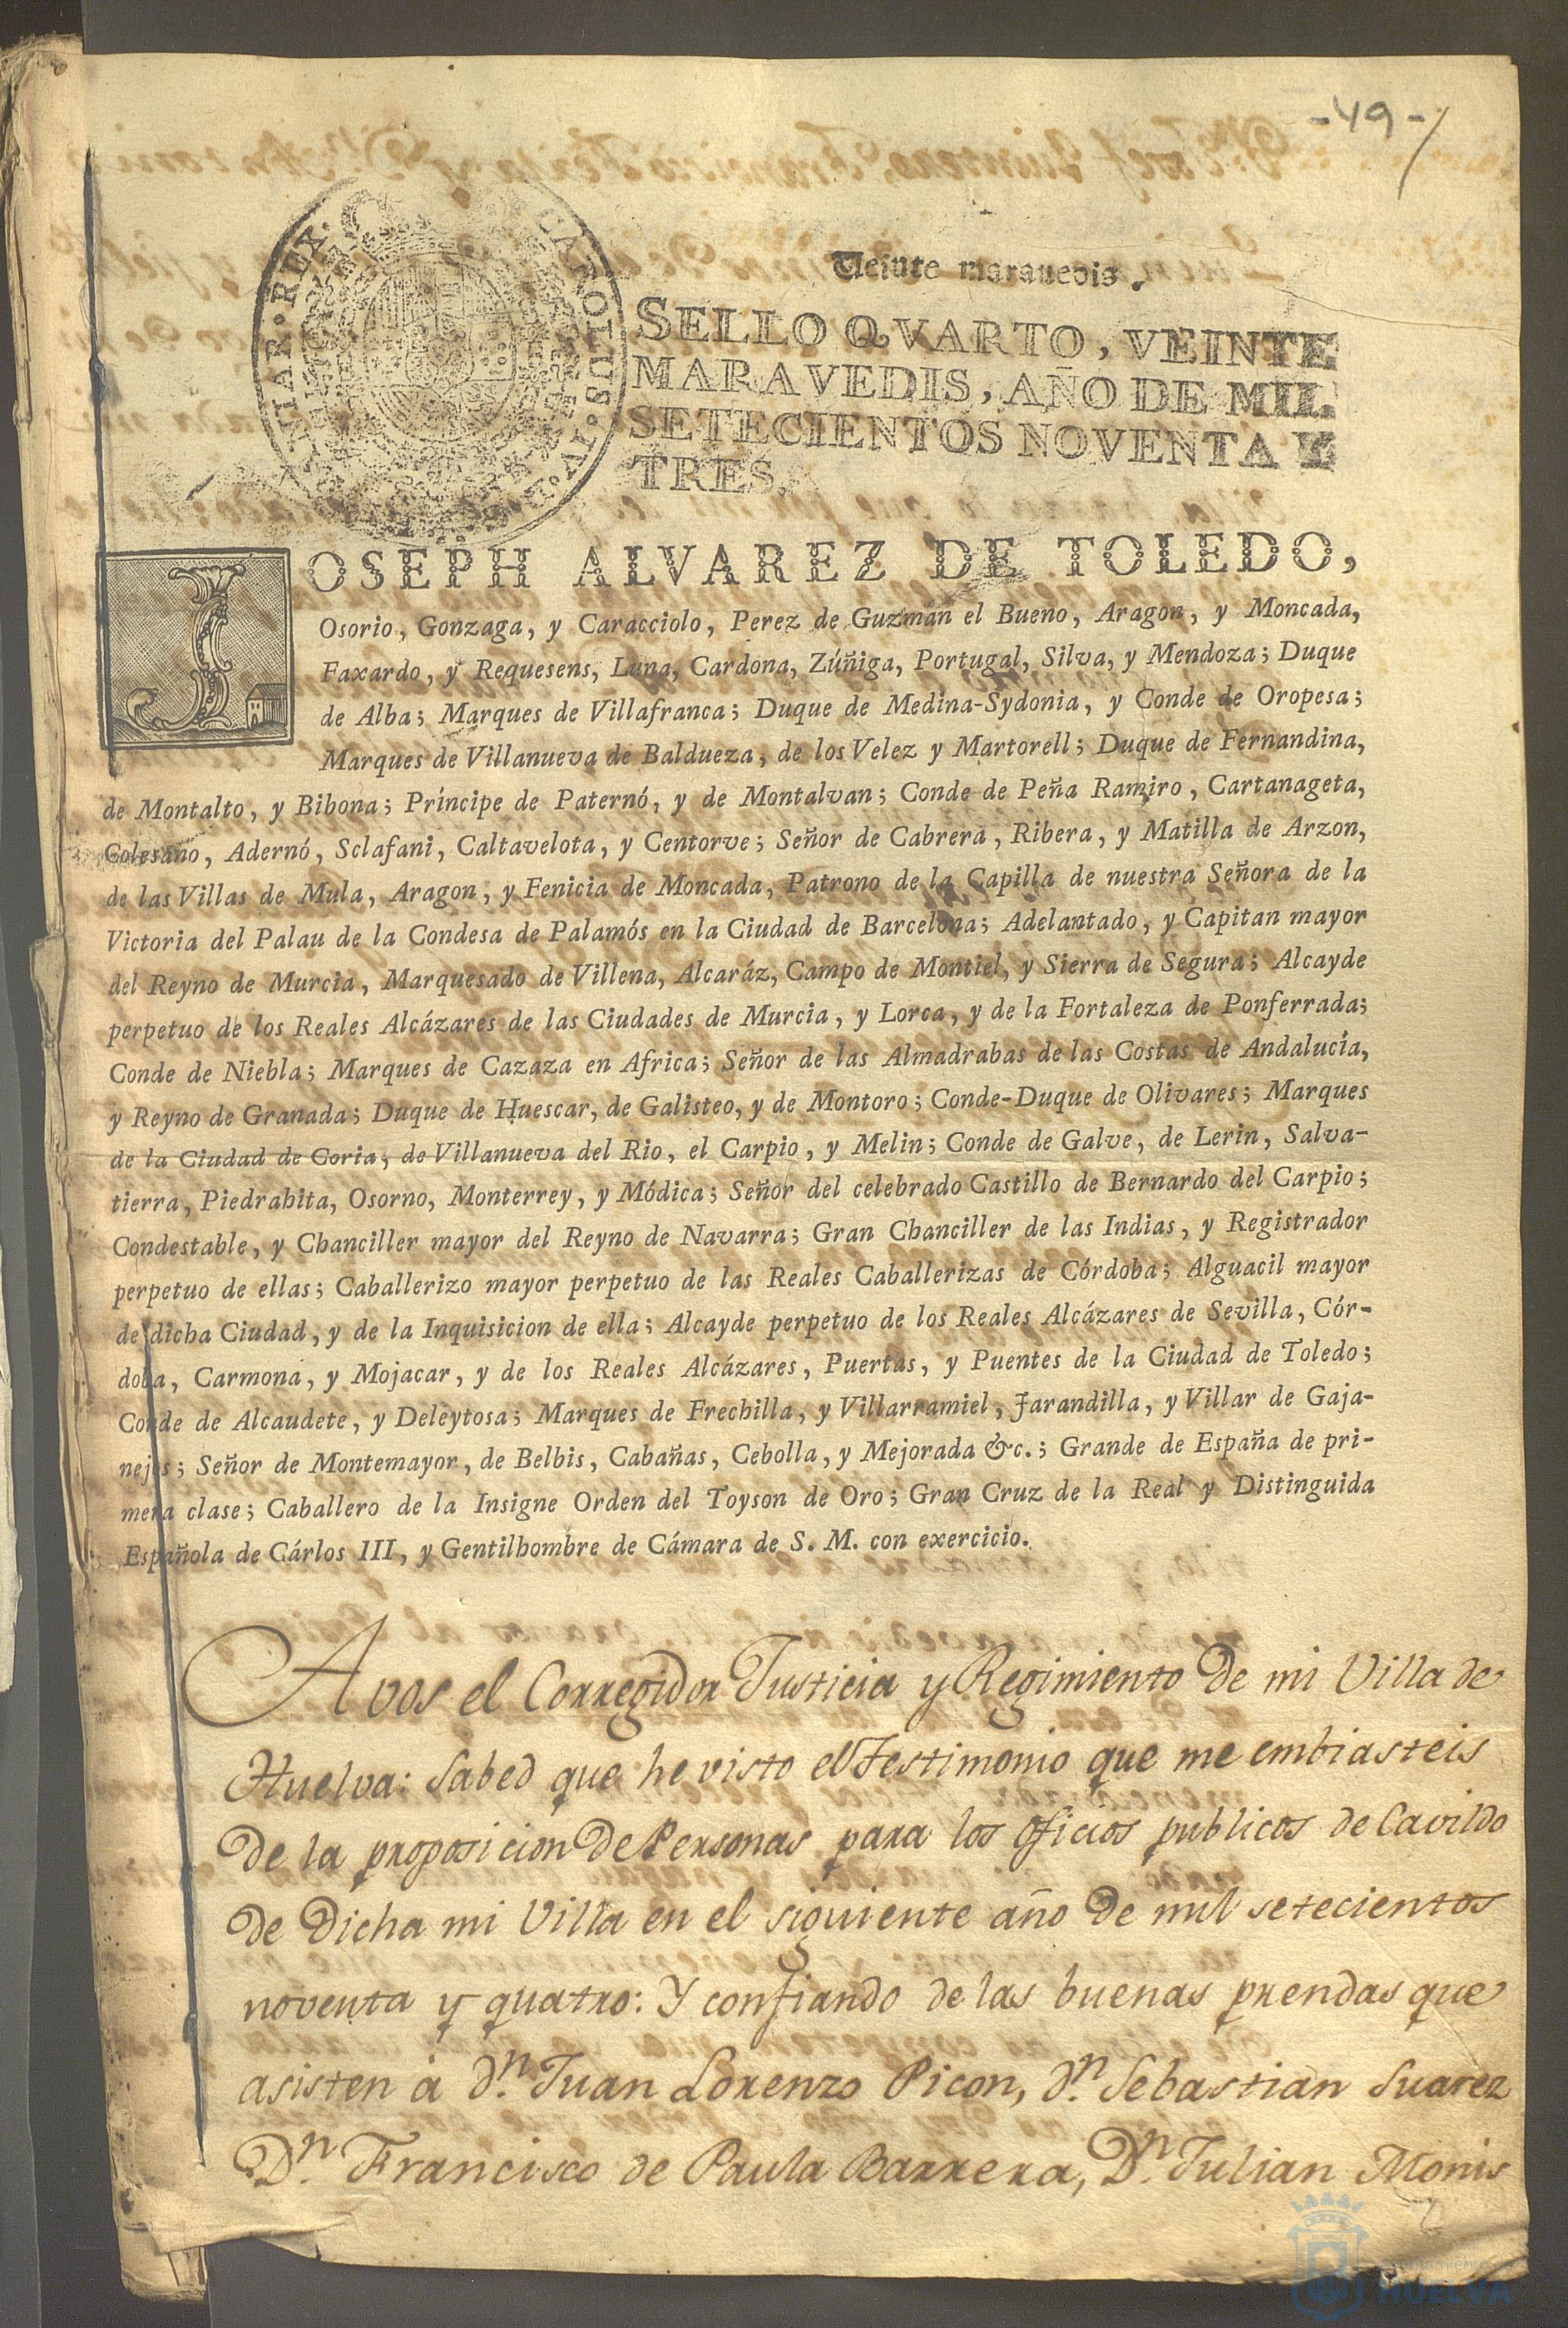 -49-
CAROLUS
TAR. REX.
Veinte maravedis.
SELLO QVARTO, VEINTE
MARAVEDIS, AÑO DE MIL
SETECIENTOS NOVENTA Y
TRES.
JOSEPH ALVAREZ DE TOLEDO,
Osorio, Gonzaga, y Caracciolo, Perez de Guzmán el Bueno, Aragon, y Moncada,
Faxardo, y Requesens, Luna, Cardona, Zúñiga, Portugal, Silva, y Mendoza; Duque
de Alba; Marques de Villafranca; Duque de Medina-Sydonia, y Conde de Oropesa;
Marques de Villanueva de Baldueza, de los Velez y Martorell; Duque de Fernandina,
de Montalto, y Bibona; Príncipe de Paternó, y de Montalvan; Conde de Peña Ramiro, Cartanageta,
Golesano, Adernó, Sclafani, Caltavelota, y Centorve; Señor de Cabrera, Ribera, y Matilla de Arzon,
de las Villas de Mula, Aragon, y Fenicia de Moncada, Patrono de la Capilla de nuestra Señora de la
Victoria del Palau de la Condesa de Palamós en la Ciudad de Barcelona; Adelantado, y Capitan mayor
del Reyno de Murcia, Marquesado de Villena, Alcaráz, Campo de Montiel, y Sierra de Segura; Alcayde
perpetuo de los Reales Alcázares de las Ciudades de Murcia, y Lorca, y de la Fortaleza de Ponferrada;
Conde de Niebla; Marques de Cazaza en Africa; Señor de las Almadrabas de las Costas de Andalucía,
y Reyno de Granada; Duque de Huescar, de Galisteo, y de Montoro; Conde-Duque de Olivares; Marques
de la Ciudad de Coria, de Villanueva del Rio, el Carpio, y Melin; Conde de Galve, de Lerin, Salva-
tierra, Piedrahita, Osorno, Monterrey, y Módica; Señor del celebrado Castillo de Bernardo del Carpio;
Condestable, y Chanciller mayor del Reyno de Navarra; Gran Chanciller de las Indias, y Registrador
perpetuo de ellas; Caballerizo mayor perpetuo de las Reales Caballerizas de Córdoba; Alguacil mayor
de dicha Ciudad, y de la Inquisicion de ella; Alcayde perpetuo de los Reales Alcázares de Sevilla, Cór-
doba, Carmona, y Mojacar, y de los Reales Alcázares, Puertas, y Puentes de la Ciudad de Toledo;
Conde de Alcaudete, y Deleytosa; Marques de Frechilla, y Villarramiel, Jarandilla, y Villar de Gaja-
nejos; Señor de Montemayor, de Belbis, Cabañas, Cebolla, y Mejorada &c.; Grande de España de pri-
mera clase; Caballero de la Insigne Orden del Toyson de Oro; Gran Cruz de la Real y Distinguida
Española de Cárlos III, y Gentilhombre de Cámara de S. M. con exercicio.
A vos el Corregidor Justicia y Regimiento de mi Villa de
Huelva: Sabed que he visto el Testimonio que me embiasteis
de la proposicion de Personas para los oficios publicos de Cavildo
de Dicha mi Villa en el siguiente año de mil setecientos
noventa y quatro: Y confiando de las buenas prendas que
asisten á dⁿ. Juan Lorenzo Picon, dⁿ. Sebastian Suarez
Dⁿ. Francisco de Paula Barrera, Dⁿ. Julian Monis
HUELVA